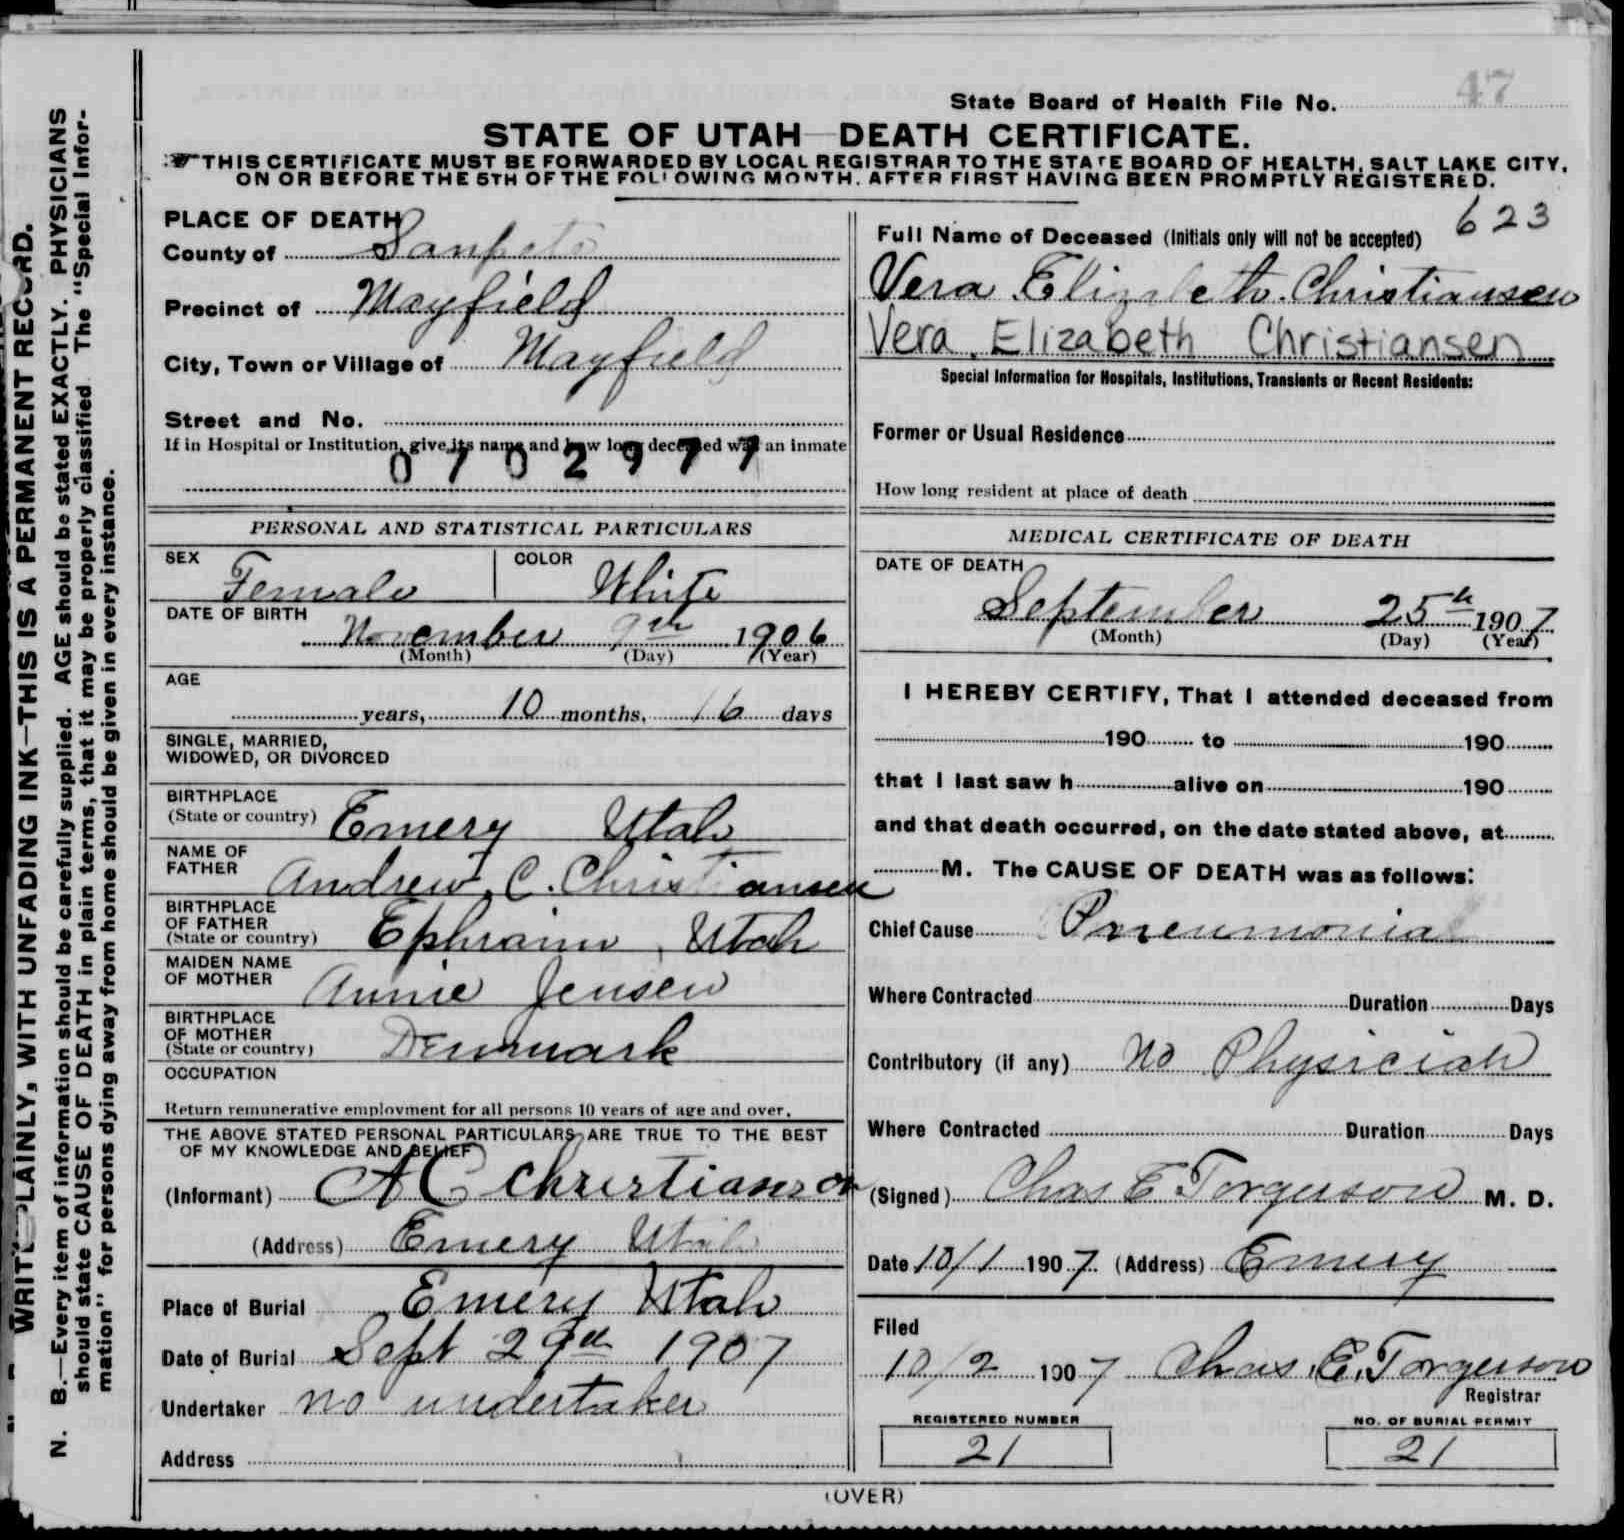 47
State Board of Health File No.
STATE OF UTAH—DEATH CERTIFICATE.
THIS CERTIFICATE MUST BE FORWARDED BY LOCAL REGISTRAR TO THE STATE BOARD OF HEALTH, SALT LAKE CITY,
ON OR BEFORE THE 5TH OF THE FOLLOWING MONTH, AFTER FIRST HAVING BEEN PROMPTLY REGISTERED.
WRITE PLAINLY, WITH UNFADING INK—THIS IS A PERMANENT RECORD.
N. B.—Every item of information should be carefully supplied. AGE should be stated EXACTLY. PHYSICIANS
should state CAUSE OF DEATH in plain terms, that it may be properly classified. The "Special Infor-
mation" for persons dying away from home should be given in every instance.
PLACE OF DEATH
County of Sanpete
Precinct of Mayfield
City, Town or Village of Mayfield
Street and No.
If in Hospital or Institution, give its name and how long deceased was an inmate
0702977
PERSONAL AND STATISTICAL PARTICULARS
SEX Female COLOR White
DATE OF BIRTH
November 9th 1906
(Month) (Day) (Year)
AGE
years, 10 months, 16 days
SINGLE, MARRIED,
WIDOWED, OR DIVORCED
BIRTHPLACE
(State or country) Emery Utah
NAME OF
FATHER Andrew C. Christiansen
BIRTHPLACE
OF FATHER
(State or country) Ephraim, Utah
MAIDEN NAME
OF MOTHER Annie Jensen
BIRTHPLACE
OF MOTHER
(State or country) Denmark
OCCUPATION
Return remunerative employment for all persons 10 years of age and over.
THE ABOVE STATED PERSONAL PARTICULARS ARE TRUE TO THE BEST
OF MY KNOWLEDGE AND BELIEF
(Informant) A C Christianson
(Address) Emery Utah
Place of Burial Emery Utah
Date of Burial Sept 29th 1907
Undertaker no undertaker
Address
623
Full Name of Deceased (Initials only will not be accepted)
Vera Elizabeth Christiansen
Vera Elizabeth Christiansen
Special Information for Hospitals, Institutions, Transients or Recent Residents:
Former or Usual Residence
How long resident at place of death
MEDICAL CERTIFICATE OF DEATH
DATE OF DEATH
September 25th 1907
(Month) (Day) (Year)
I HEREBY CERTIFY, That I attended deceased from
190 to 190
that I last saw h alive on 190
and that death occurred, on the date stated above, at
M. The CAUSE OF DEATH was as follows:
Chief Cause Pneumonia
Where Contracted Duration Days
Contributory (if any) No Physician
Where Contracted Duration Days
(Signed) Chas E Torgerson M. D.
Date 10/1 1907 (Address) Emery
Filed
10/2 1907 Chas. E. Torgerson
Registrar
REGISTERED NUMBER NO. OF BURIAL PERMIT
21 21
(OVER)